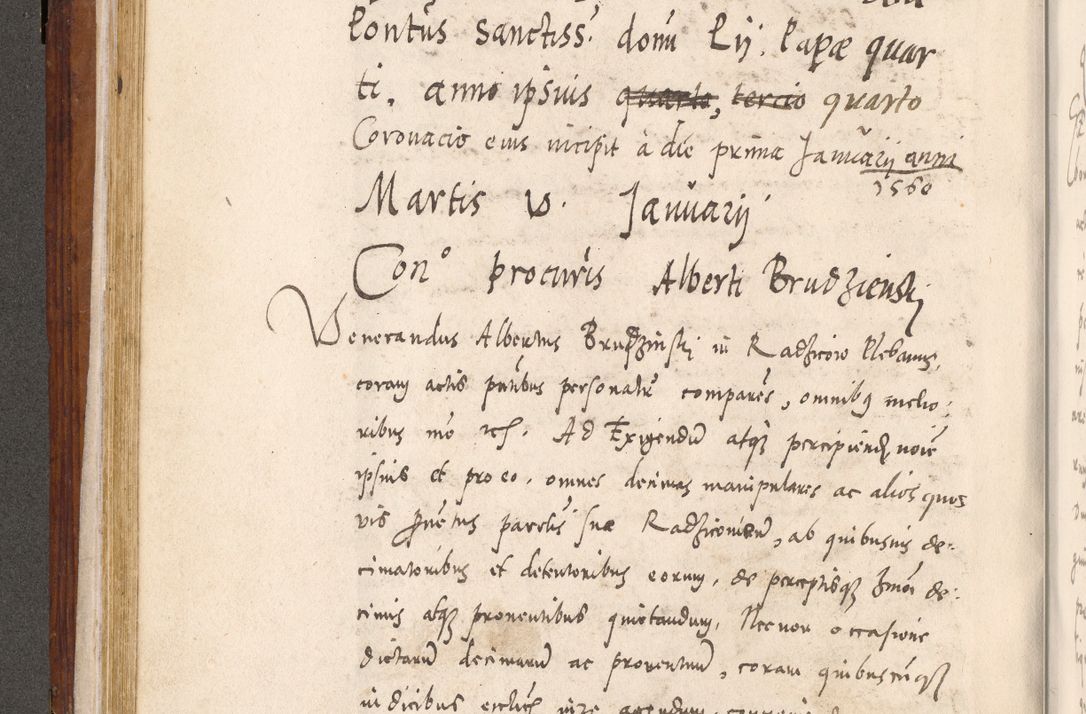 Pontus Sanctiss. domi Pij. Papæ quar
ti. anno ipsius quarto, tercio quarto
Coronacio eius incipit à die prima Januarij anni
1560
Martis v. Januarij
Con.o procuris Alberti Brudzienskj
Venerandus Albertus Brudzinskj in Radzicow Plebanus,
coram actis pntibus personalr compares, omnibq melio:
ribus mo etc. Ad Exigendū atqz percipiend noīe
ipsius et pro eo, omnes decimas manipulares ac alios quos
vis Prouetus paroclis suæ Radziconien, ab quibusuis de:
cimatoribus et detentoribus eorum, de perceptisqz hmōi de:
cimis atqz prouentibus quietandum. Necnon occasione
dictarū decimarū ac prouentuū, coram quibuscūqz
iudicibus ecclicis iure agendum